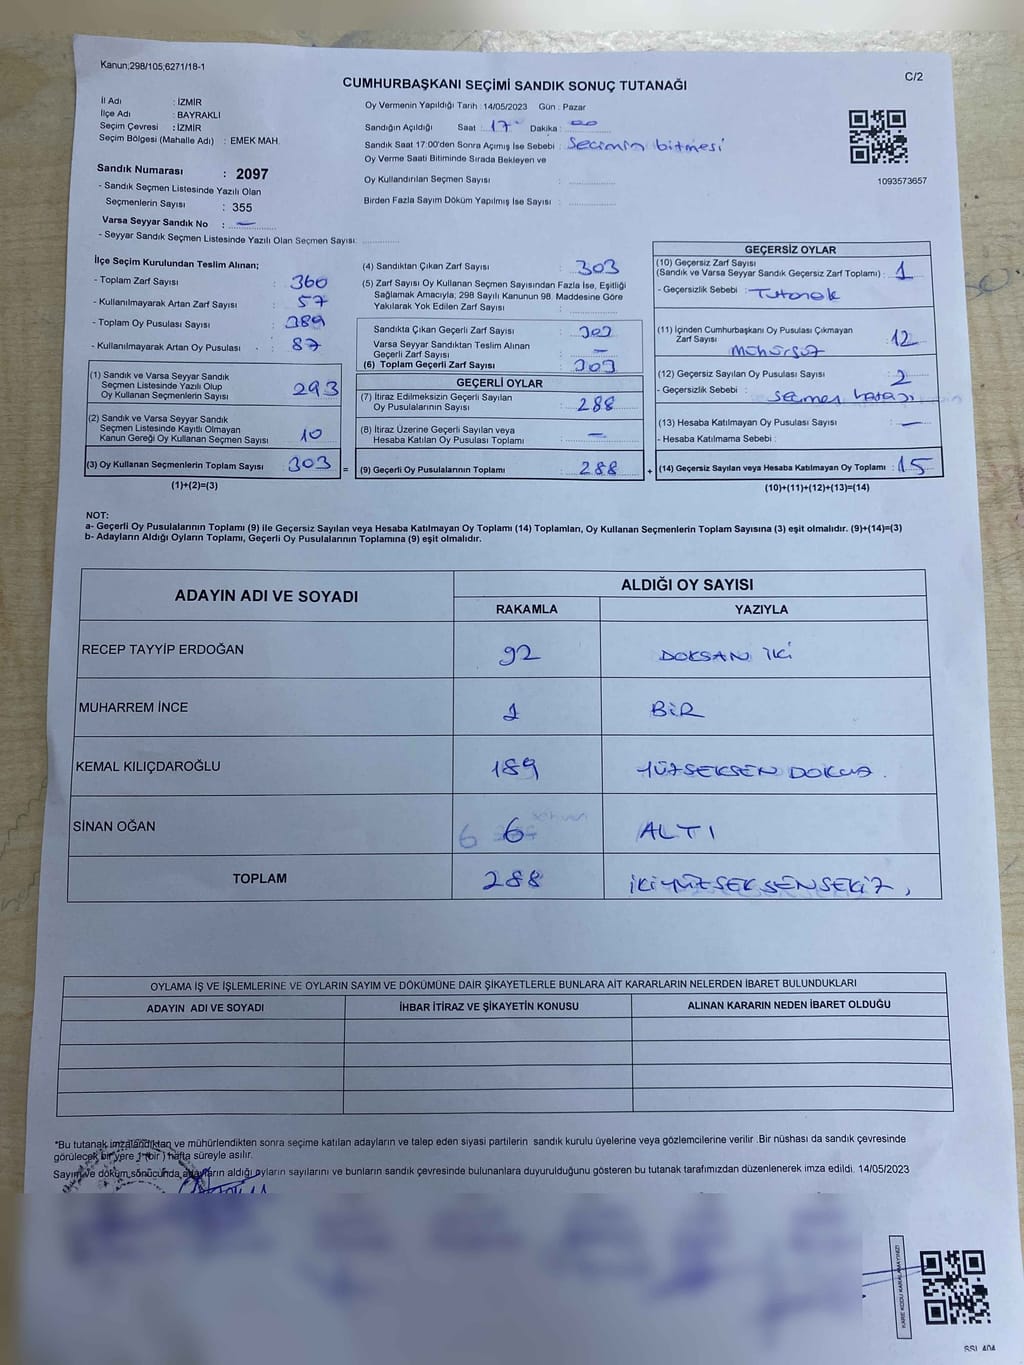 Kanun,298/105,6271/18-1
C/2
CUMHURBAŞKANI SEÇİMİ SANDIK SONUÇ TUTANAĞI
İl Adı : İZMİR
İlçe Adı : BAYRAKLI
Seçim Çevresi : İZMİR
Seçim Bölgesi (Mahalle Adı) : EMEK MAH.
Sandık Numarası : 2097
- Sandık Seçmen Listesinde Yazılı Olan
Seçmenlerin Sayısı : 355
Varsa Seyyar Sandık No : —
- Seyyar Sandık Seçmen Listesinde Yazılı Olan Seçmen Sayısı:
Oy Vermenin Yapıldığı Tarih :14/05/2023 Gün : Pazar
Sandığın Açıldığı Saat : 17 Dakika : 00
Sandık Saat 17:00'den Sonra Açımış İse Sebebi : Seçimin bitmesi
Oy Verme Saati Bitiminde Sırada Bekleyen ve
Oy Kullandırılan Seçmen Sayısı :
Birden Fazla Sayım Döküm Yapılmış İse Sayısı :
1093573657
İlçe Seçim Kurulundan Teslim Alınan;
- Toplam Zarf Sayısı : 360
- Kullanılmayarak Artan Zarf Sayısı : 57
- Toplam Oy Pusulası Sayısı : 389
- Kullanılmayarak Artan Oy Pusulası : 87
(1) Sandık ve Varsa Seyyar Sandık
Seçmen Listesinde Yazılı Olup
Oy Kullanan Seçmenlerin Sayısı : 293
(2) Sandık ve Varsa Seyyar Sandık
Seçmen Listesinde Kayıtlı Olmayan
Kanun Gereği Oy Kullanan Seçmen Sayısı : 10
(3) Oy Kullanan Seçmenlerin Toplam Sayısı : 303
(1)+(2)=(3)
(4) Sandıktan Çıkan Zarf Sayısı : 303
(5) Zarf Sayısı Oy Kullanan Seçmen Sayısından Fazla İse, Eşitliği
Sağlamak Amacıyla; 298 Sayılı Kanunun 98. Maddesine Göre
Yakılarak Yok Edilen Zarf Sayısı :
Sandıkta Çıkan Geçerli Zarf Sayısı :
Varsa Seyyar Sandıktan Teslim Alınan
Geçerli Zarf Sayısı : —
(6) Toplam Geçerli Zarf Sayısı : 303
GEÇERLİ OYLAR
(7) İtiraz Edilmeksizin Geçerli Sayılan
Oy Pusulalarının Sayısı : 288
(8) İtiraz Üzerine Geçerli Sayılan veya
Hesaba Katılan Oy Pusulası Toplamı : —
= (9) Geçerli Oy Pusulalarının Toplamı : 288
GEÇERSİZ OYLAR
(10) Geçersiz Zarf Sayısı
(Sandık ve Varsa Seyyar Sandık Geçersiz Zarf Toplamı) : 1
- Geçersizlik Sebebi : Tutanak
(11) İçinden Cumhurbaşkanı Oy Pusulası Çıkmayan
Zarf Sayısı : 12
Mühürsüz
(12) Geçersiz Sayılan Oy Pusulası Sayısı : 2
- Geçersizlik Sebebi : Seçmen hatası
(13) Hesaba Katılmayan Oy Pusulası Sayısı : —
- Hesaba Katılmama Sebebi :
+ (14) Geçersiz Sayılan veya Hesaba Katılmayan Oy Toplamı : 15
(10)+(11)+(12)+(13)=(14)
NOT:
a- Geçerli Oy Pusulalarının Toplamı (9) ile Geçersiz Sayılan veya Hesaba Katılmayan Oy Toplamı (14) Toplamları, Oy Kullanan Seçmenlerin Toplam Sayısına (3) eşit olmalıdır. (9)+(14)=(3)
b- Adayların Aldığı Oyların Toplamı, Geçerli Oy Pusulalarının Toplamına (9) eşit olmalıdır.
ADAYIN ADI VE SOYADI
ALDIĞI OY SAYISI
RAKAMLA YAZIYLA
RECEP TAYYİP ERDOĞAN 92 DOKSAN İKİ
MUHARREM İNCE 1 BİR
KEMAL KILIÇDAROĞLU 189 YÜZSEKSEN DOKUZ.
SİNAN OĞAN 6 6 ALTI
TOPLAM 288 İKİYÜZSEKSENSEKİZ,
OYLAMA İŞ VE İŞLEMLERİNE VE OYLARIN SAYIM VE DÖKÜMÜNE DAİR ŞİKAYETLERLE BUNLARA AİT KARARLARIN NELERDEN İBARET BULUNDUKLARI
ADAYIN ADI VE SOYADI İHBAR İTİRAZ VE ŞİKAYETİN KONUSU ALINAN KARARIN NEDEN İBARET OLDUĞU
*Bu tutanak imzalandıktan ve mühürlendikten sonra seçime katılan adayların ve talep eden siyasi partilerin sandık kurulu üyelerine veya gözlemcilerine verilir .Bir nüshası da sandık çevresinde
görülecek bir yere 1 (bir ) hafta süreyle asılır.
Sayım ve döküm sonucunda adayların aldığı oyların sayılarını ve bunların sandık çevresinde bulunanlara duyurulduğunu gösteren bu tutanak tarafımızdan düzenlenerek imza edildi. 14/05/2023
KARE KODU KARALAMAYINIZ!